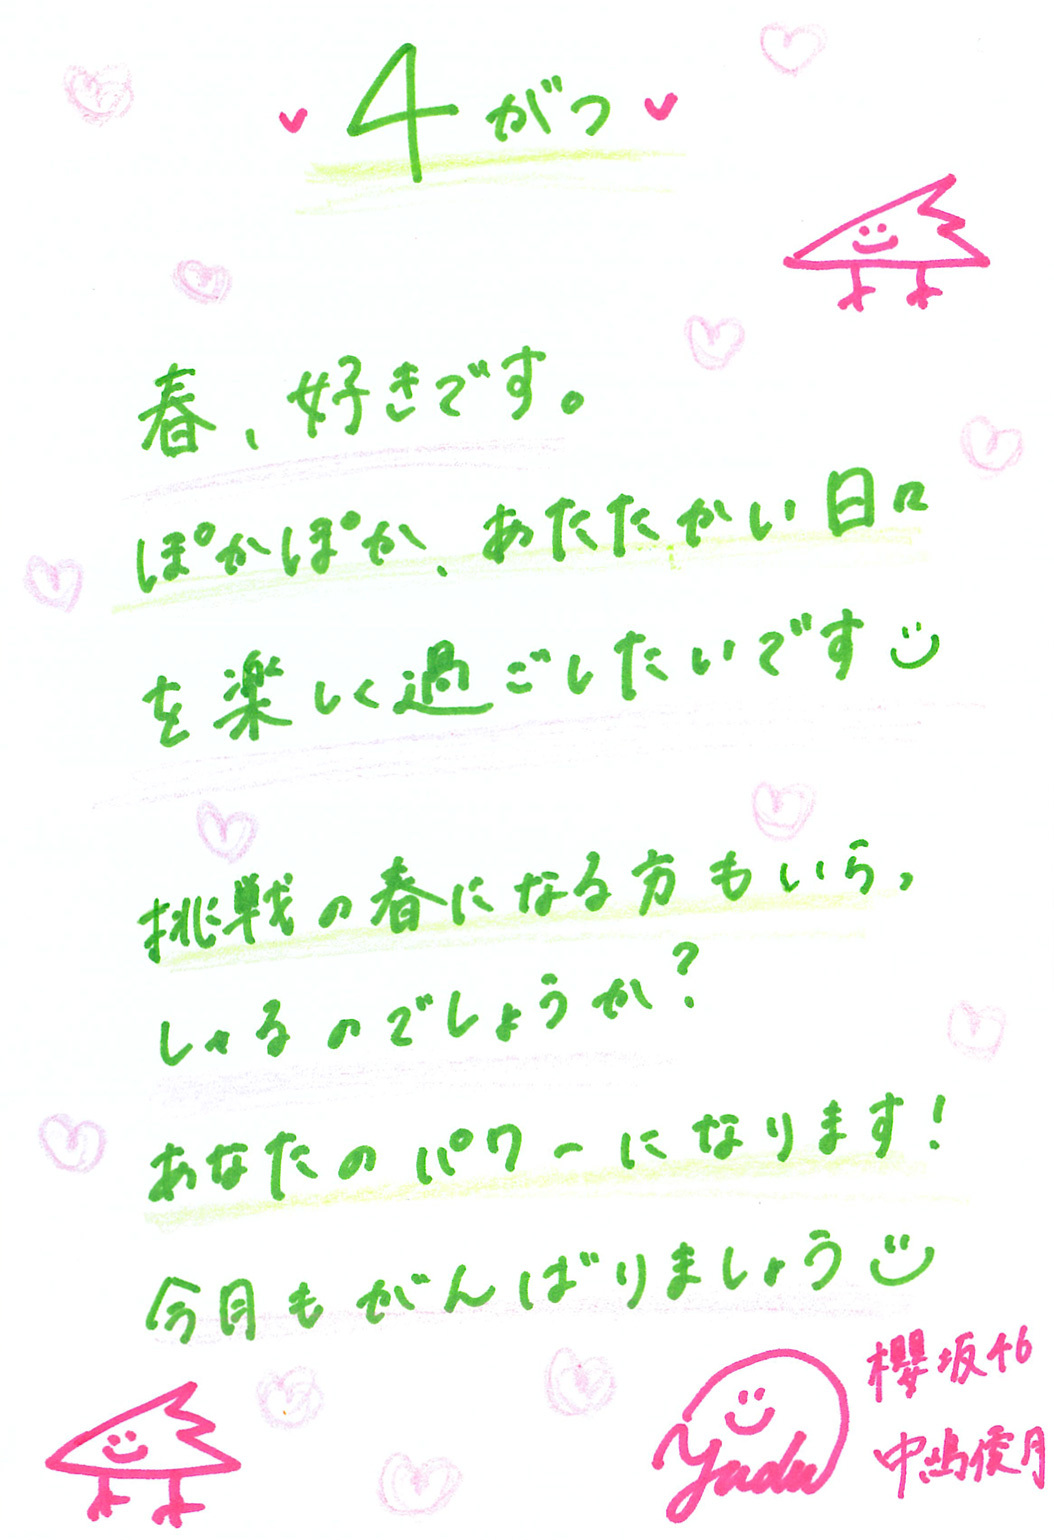 4がつ
春、好きです。
ぽかぽか、あたたかい日々
を楽しく過ごしたいです
挑戦の春になる方もいらっ
しゃるのでしょうか?
あなたのパワーになります!
今月もがんばりましょう
櫻坂46
中嶋優月
Yudu